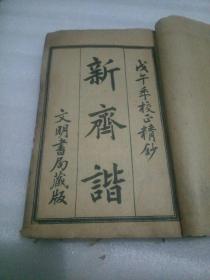 戊午年校正精鈔
新齊諧
文明書局藏版